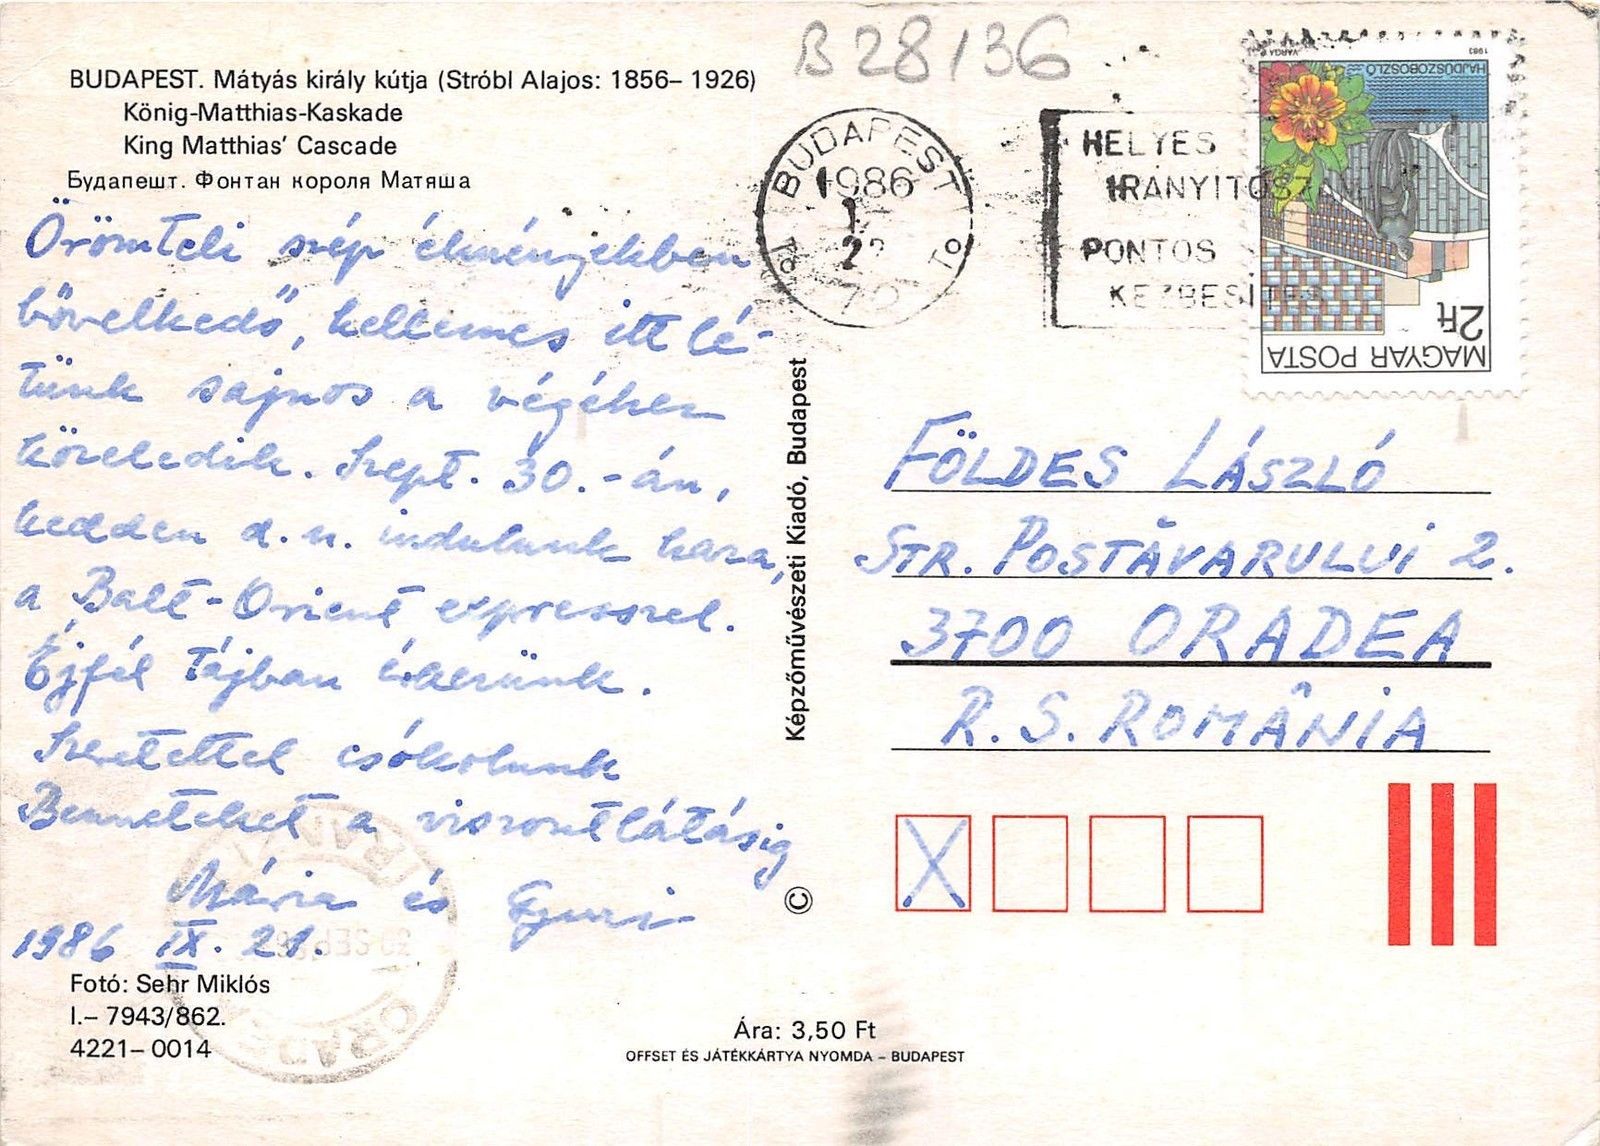 B 28136
BUDAPEST. Mátyás király kútja (Stróbl Alajos: 1856– 1926)
König-Matthias-Kaskade
King Matthias' Cascade
Будапешт. Фонтан короля Матяша
Örömteli szép élményekben
bővelkedő, kellemes itt lé-
tünk sajnos a végéhez
közeledik. Szept. 30.-án,
kedden d.u. indulunk haza,
a Balt-Orient expresszel.
Éjfél tájban érkezünk.
Szeretettel csókolunk
Benneteket a viszontlátásig
Mária és Gyuri
1986 IX. 21.
Fotó: Sehr Miklós
I.– 7943/862.
4221– 0014
Képzőművészeti Kiadó, Budapest
©
BUDAPEST
1986
HELYES
IRÁNYÍTÓSZÁM
PONTOS
KÉZBESÍTÉS
1983
VARGA P
HAJDÚSZOBOSZLÓ
2Ft
MAGYAR POSTA
FÖLDES LÁSZLÓ
STR. POSTĂVARULUI 2.
3700 ORADEA
R. S. ROMÂNIA
X
ORADEA
Ára: 3,50 Ft
OFFSET ÉS JÁTÉKKÁRTYA NYOMDA – BUDAPEST